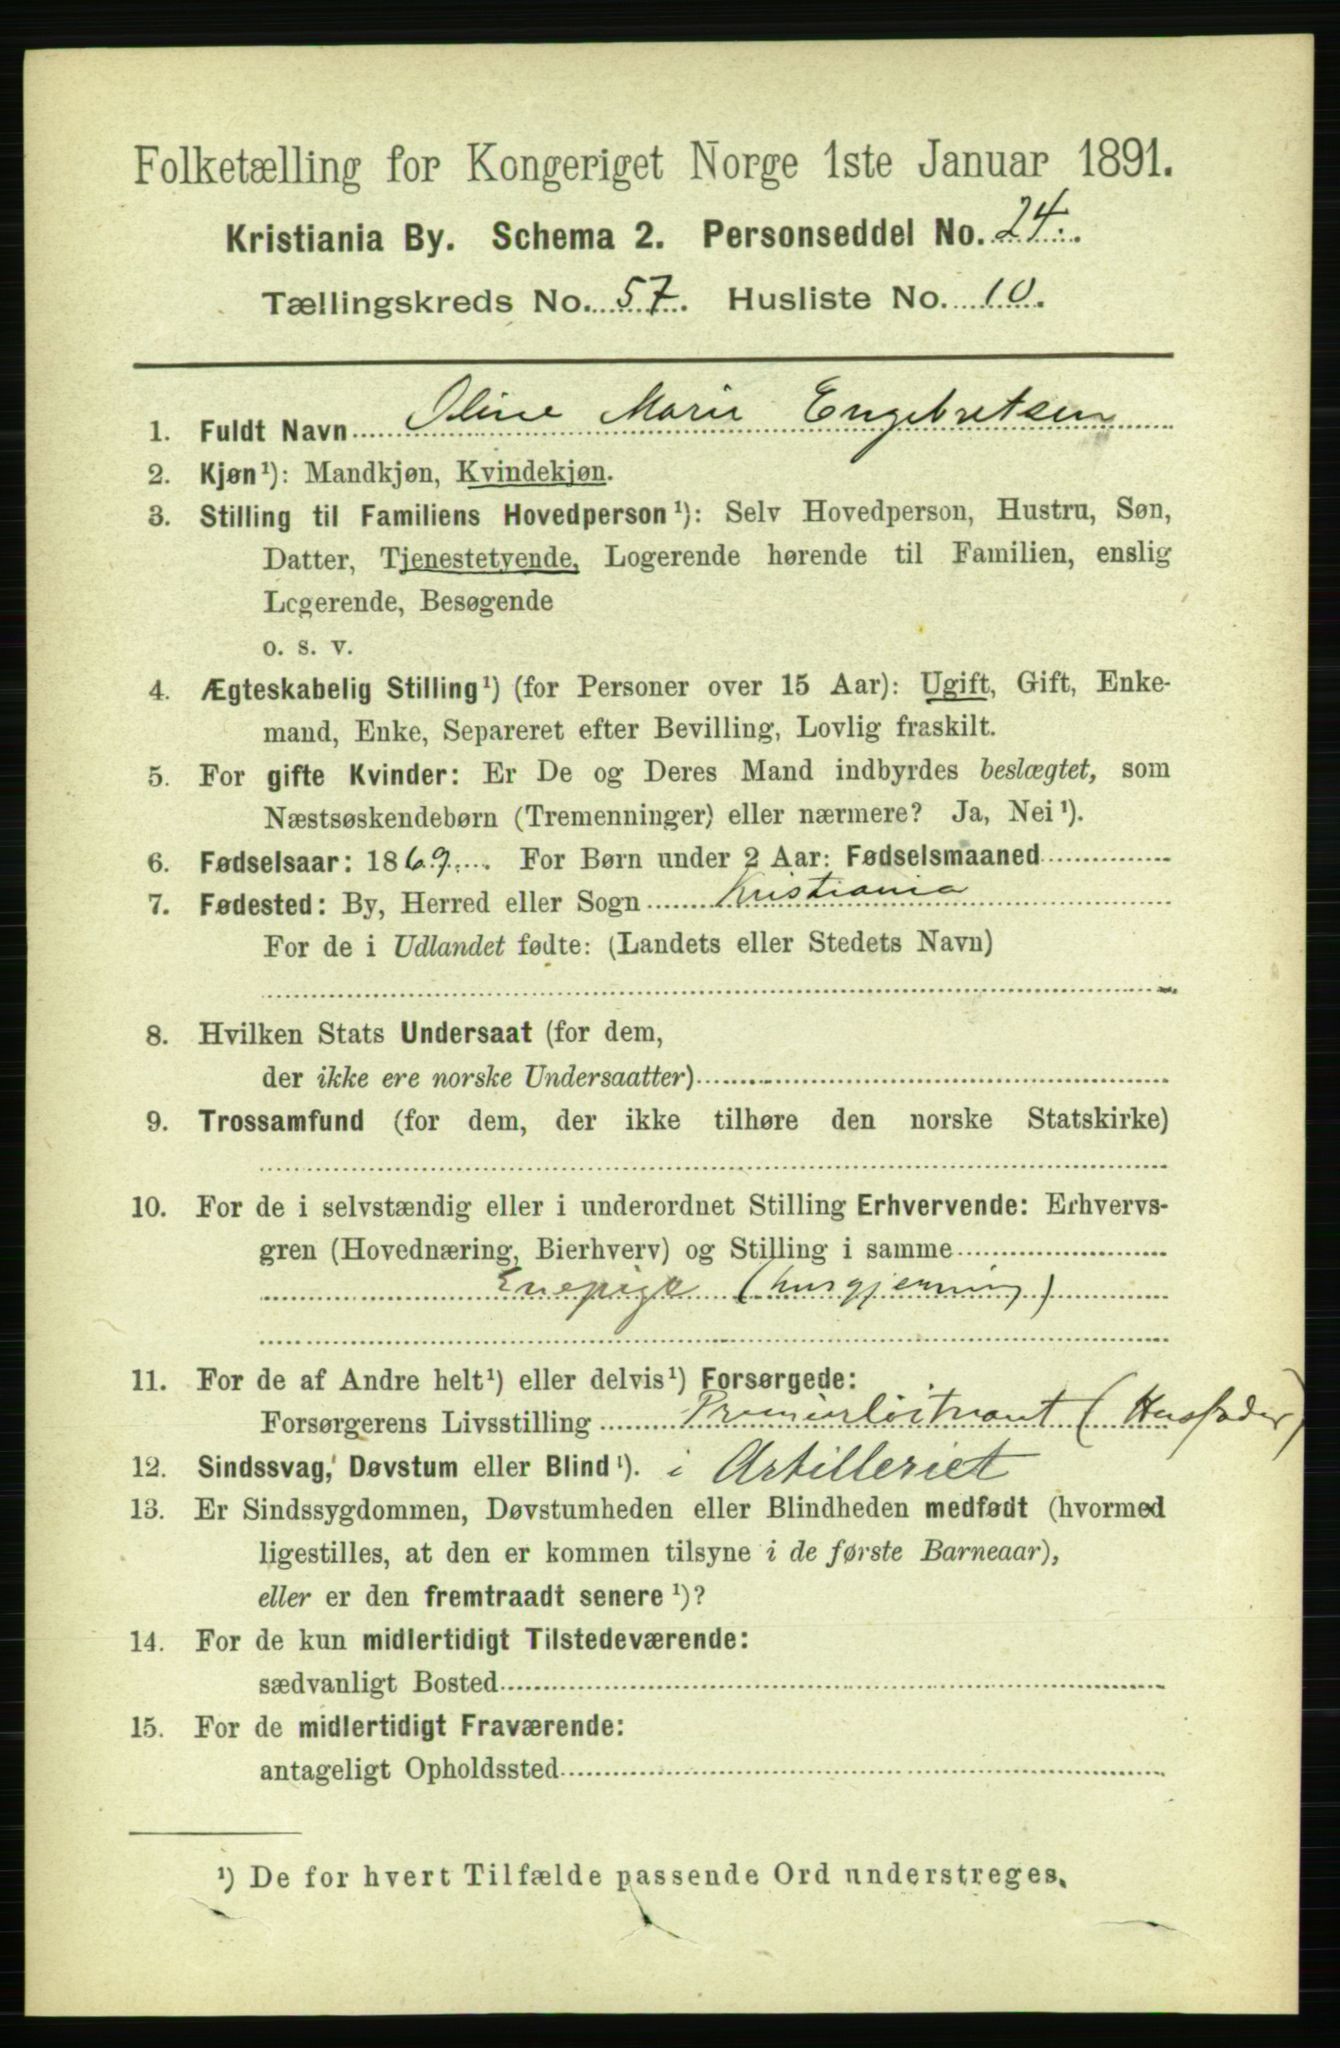 Folketælling for Kongeriget Norge 1ste Januar 1891.
Kristiania By. Schema 2. Personseddel No. 24.
Tællingskreds No. 57. Husliste No. 10.
1. Fuldt Navn Oline Marie Engebretsen
2. Kjøn¹): Mandkjøn, Kvindekjøn.
3. Stilling til Familiens Hovedperson¹): Selv Hovedperson, Hustru, Søn,
Datter, Tjenestetyende, Logerende hørende til Familien, enslig
Logerende, Besøgende
o. s. v.
4. Ægteskabelig Stilling¹) (for Personer over 15 Aar): Ugift, Gift, Enke-
mand, Enke, Separeret efter Bevilling, Lovlig fraskilt.
5. For gifte Kvinder: Er De og Deres Mand indbyrdes beslægtet, som
Næstsøskendebørn (Tremenninger) eller nærmere? Ja, Nei¹).
6. Fødselsaar: 1869. For Børn under 2 Aar: Fødselsmaaned
7. Fødested: By, Herred eller Sogn Kristiania
For de i Udlandet fødte: (Landets eller Stedets Navn)
8. Hvilken Stats Undersaat (for dem,
der ikke ere norske Undersaatter)
9. Trossamfund (for dem, der ikke tilhøre den norske Statskirke)
10. For de i selvstændig eller i underordnet Stilling Erhvervende: Erhvervs-
gren (Hovednæring, Bierhverv) og Stilling i samme
Enepige (husgjerning)
11. For de af Andre helt¹) eller delvis¹) Forsørgede:
Forsørgerens Livsstilling Premierløitnant (Husfader)
12. Sindssvag, Døvstum eller Blind¹). i Artilleriet
13. Er Sindssygdommen, Døvstumheden eller Blindheden medfødt (hvormed
ligestilles, at den er kommen tilsyne i de første Barneaar),
eller er den fremtraadt senere¹)?
14. For de kun midlertidigt Tilstedeværende:
sædvanligt Bosted
15. For de midlertidigt Fraværende:
antageligt Opholdssted
¹) De for hvert Tilfælde passende Ord understreges.